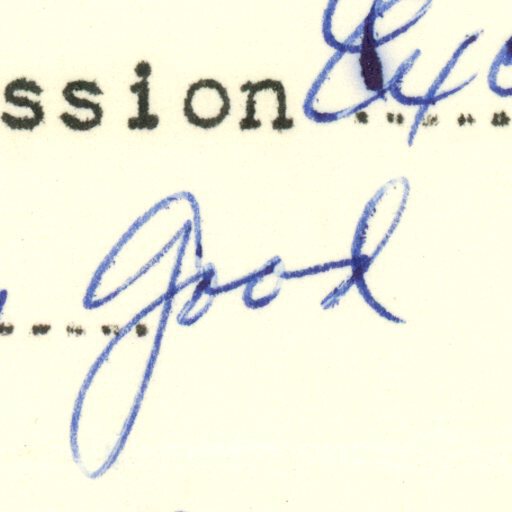 ssion Exc
good